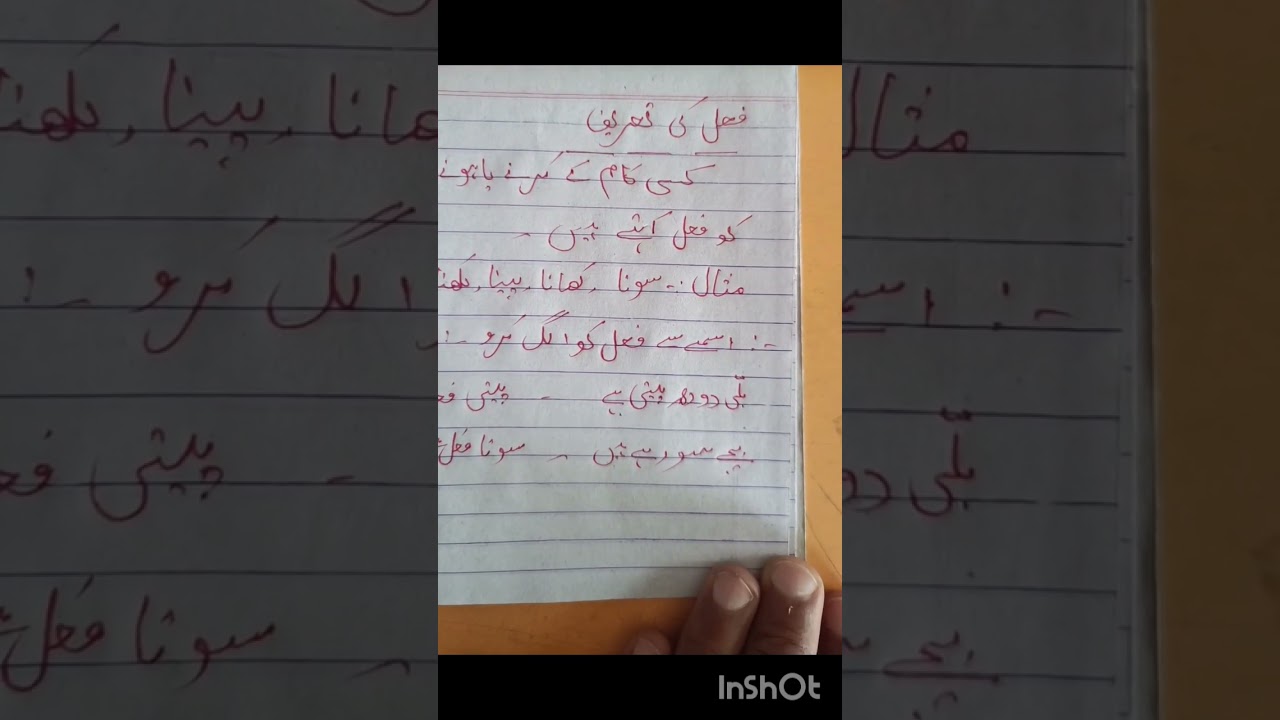 فعل کی تعریف
کسی کام کے کرنے یا ہونے
کو فعل کہتے ہیں ۔
مثال :- سونا ، کھانا ، پینا ، لکھنا
-: اسمے سے فعل کو الگ کرو :-
بلّی دودھ پیتی ہے - پیتی فعل
بچے سو رہے ہیں - سونا فعل
InShOt